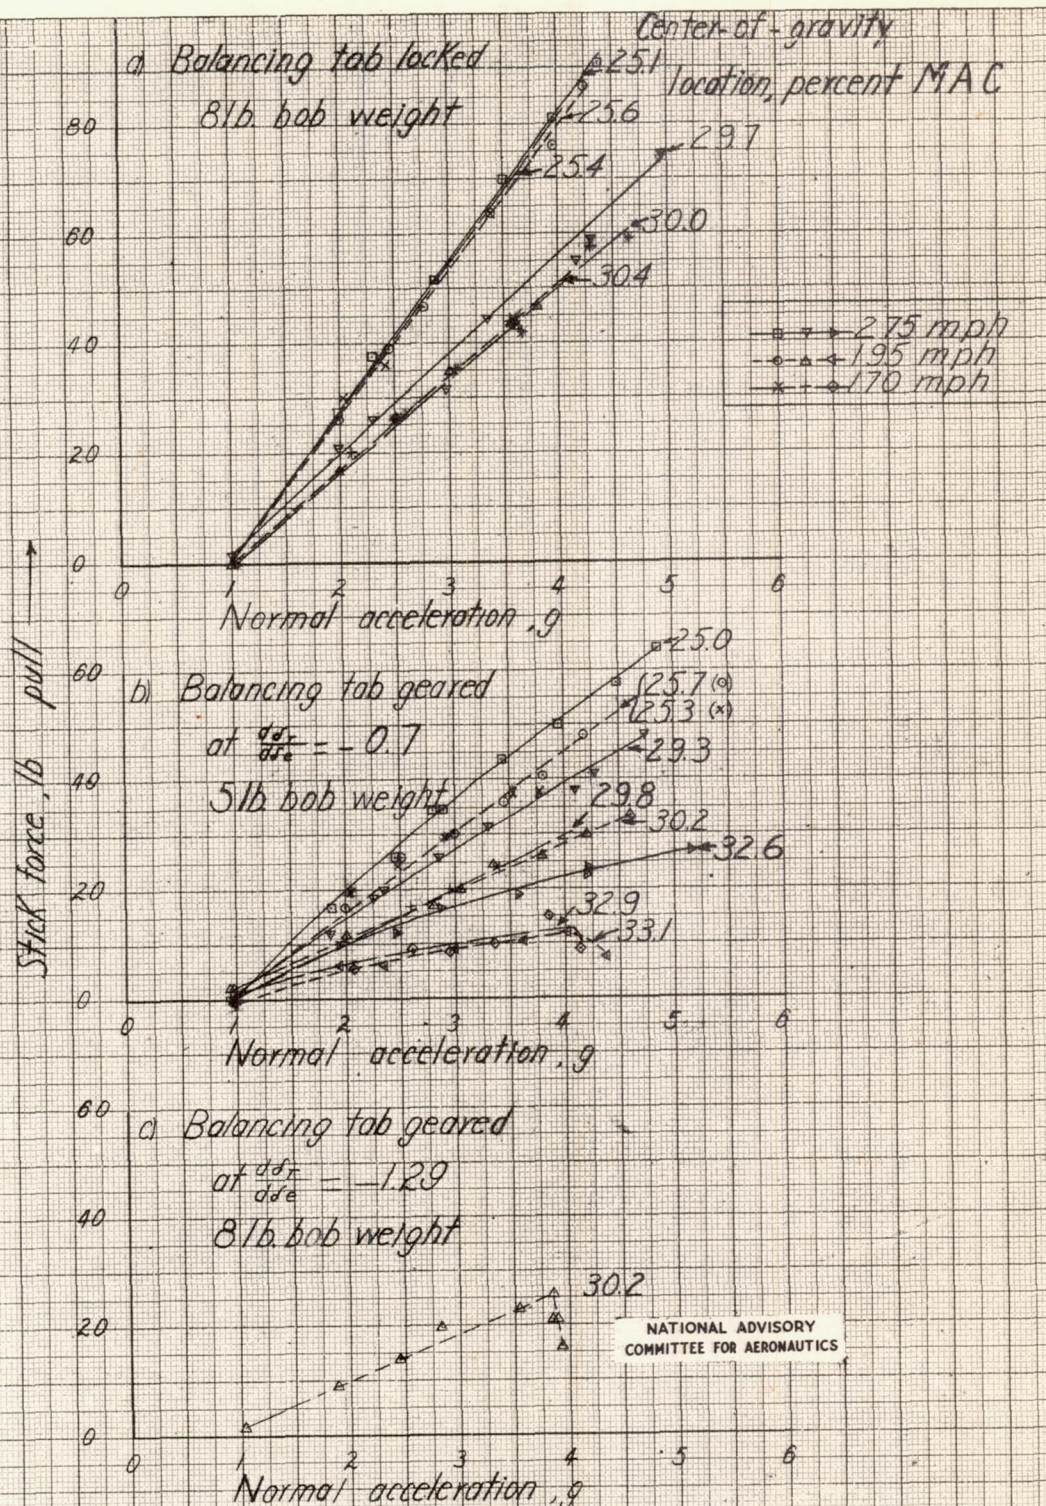 Center-of-gravity
location, percent MAC
a) Balancing tab locked
8 lb. bob weight
25.1
25.6
25.4
29.7
30.0
30.4
275 mph
195 mph
170 mph
80
60
40
20
0
0 1 2 3 4 5 6
Normal acceleration, g
Stick force, lb pull
b) Balancing tab geared
at dδT/dδe = -0.7
5 lb. bob weight
25.0
25.7 (o)
25.3 (x)
29.3
29.8
30.2
32.6
32.9
33.1
60
40
20
0
0 1 2 3 4 5 6
Normal acceleration, g
c) Balancing tab geared
at dδT/dδe = -1.29
8 lb. bob weight
30.2
60
40
20
0
0 1 2 3 4 5 6
Normal acceleration, g
NATIONAL ADVISORY
COMMITTEE FOR AERONAUTICS